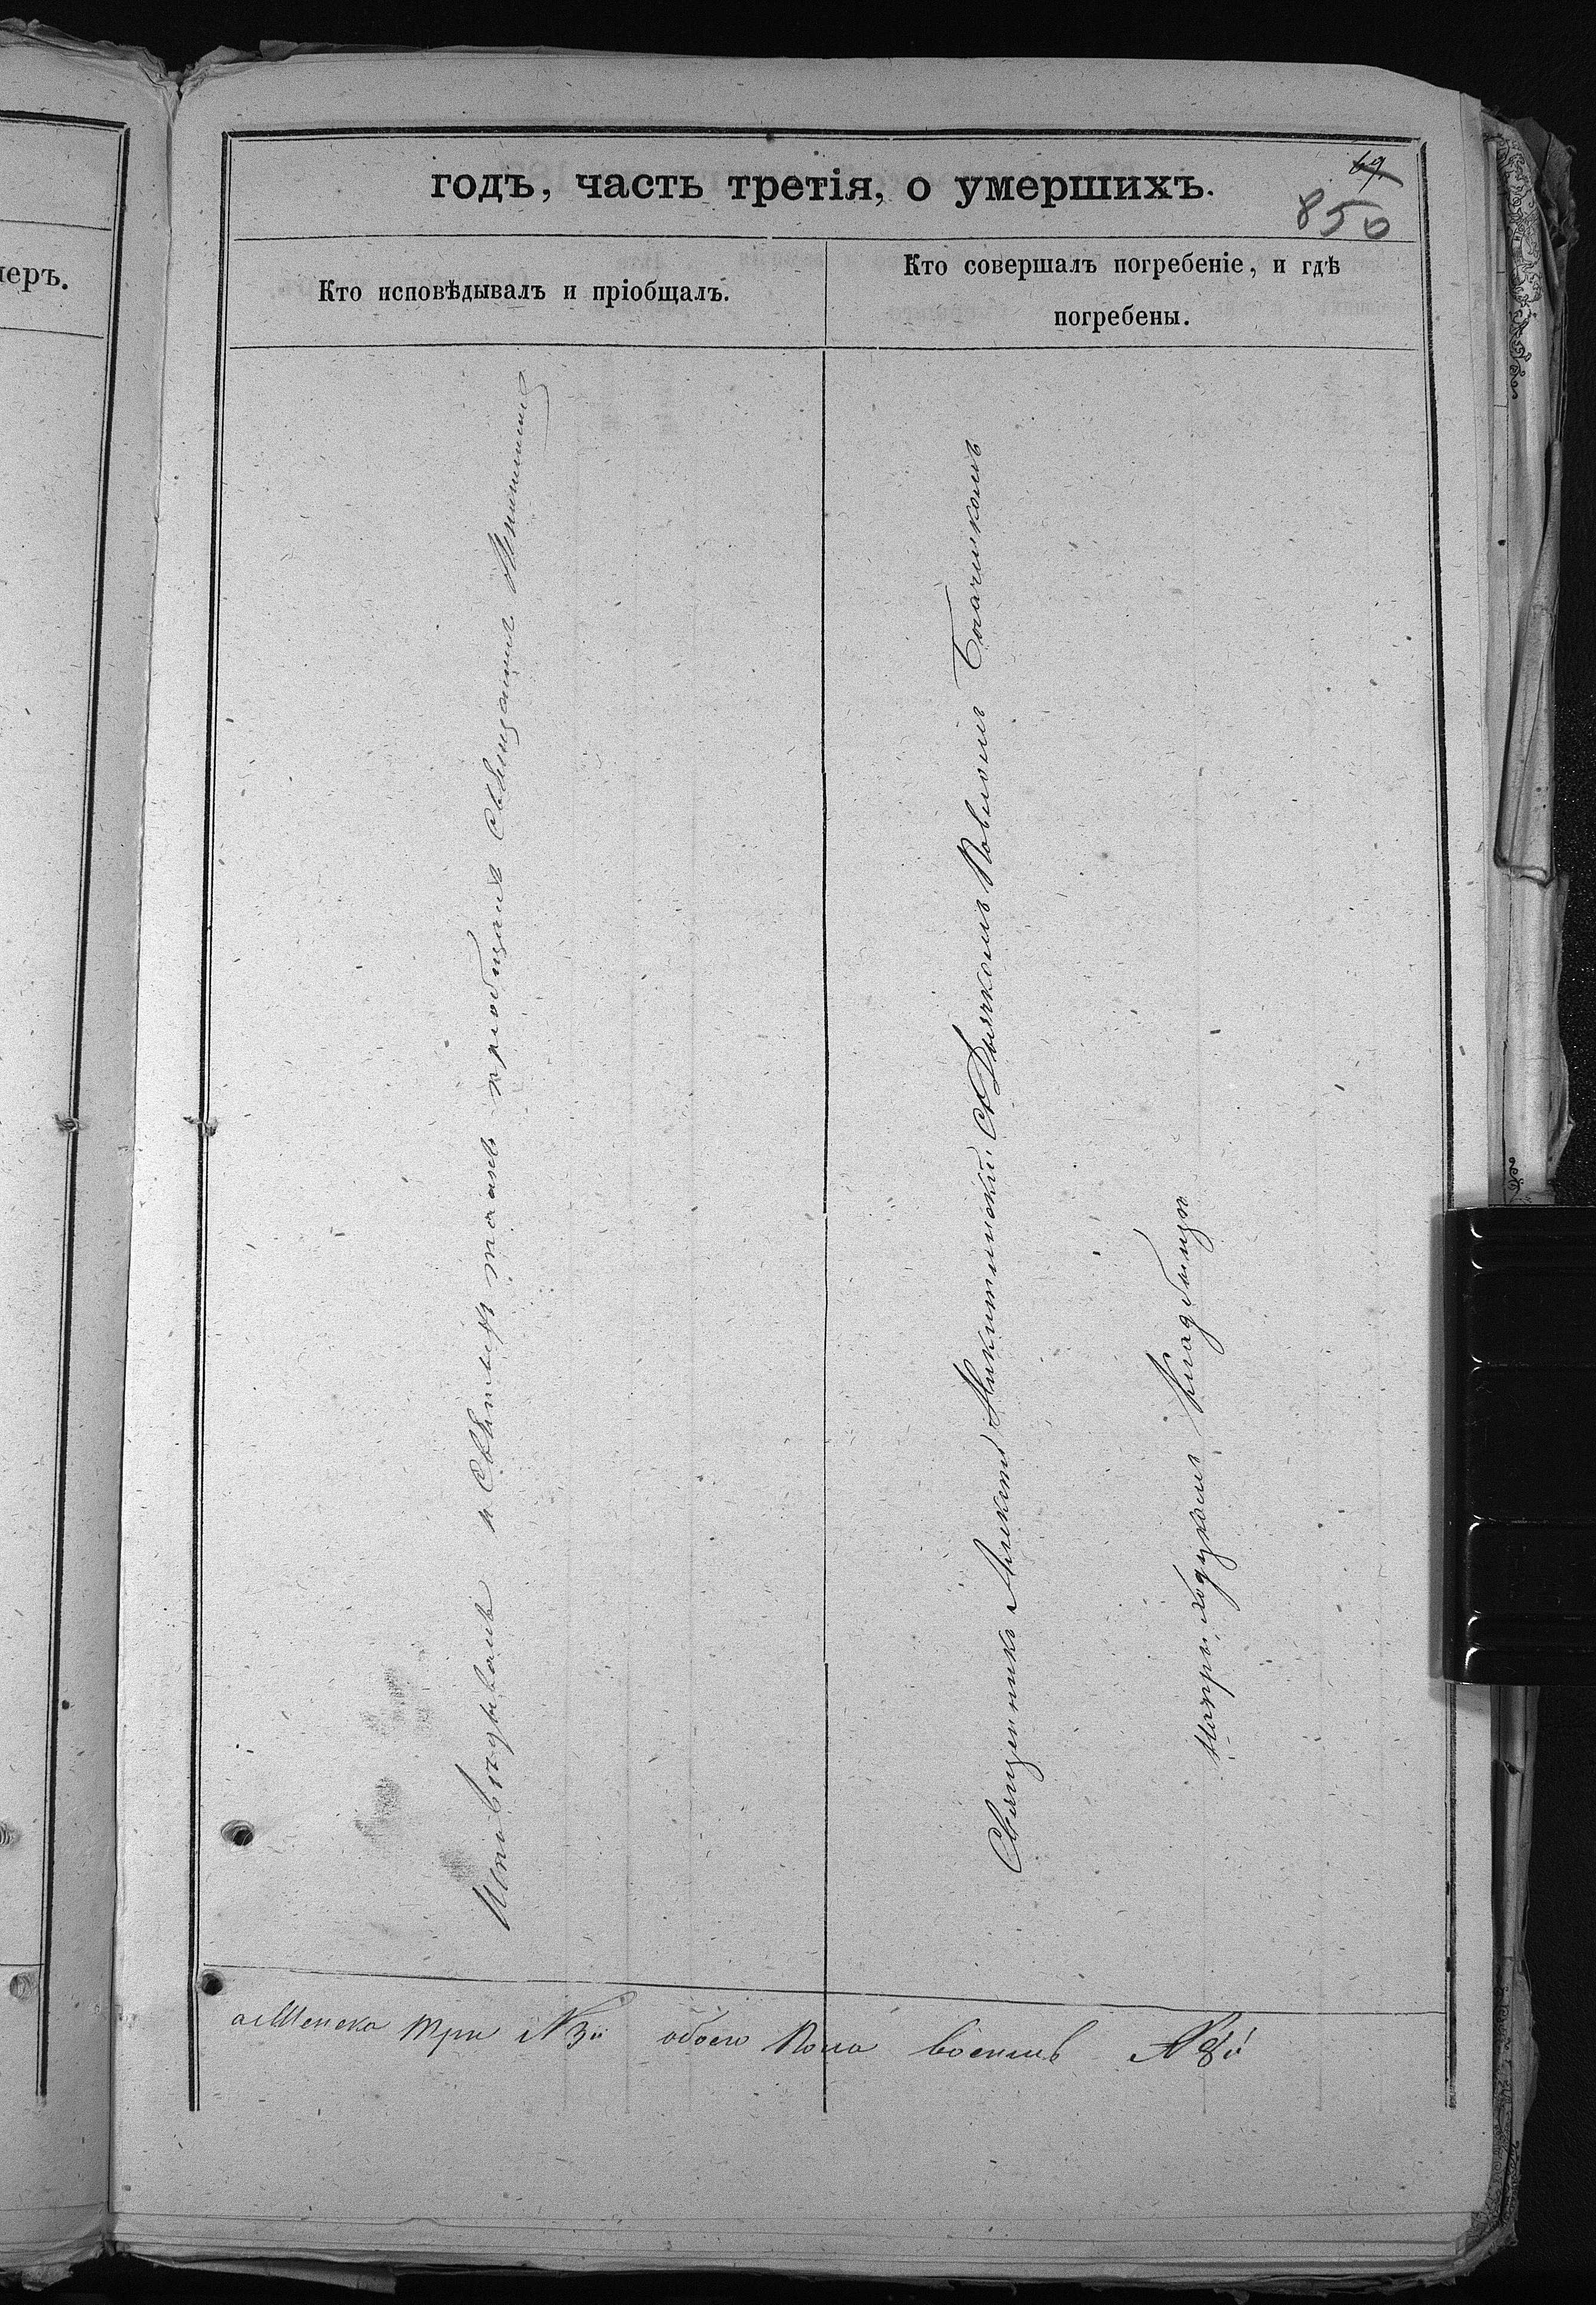 меръ.
годъ, часть третія, о умершихъ.
69
850
Кто исповѣдывалъ и пріобщалъ.
Кто совершалъ погребеніе, и гдѣ
погребены.
Исповѣдывалъ и Святыхъ таинъ пріобщалъ Священникъ Никитскій
Священникъ Алексѣй Никитскій съ Дьячкомъ Павломъ
На приходскомъ кладбищѣ
а Женска три №3й обоего пола восемь №8й